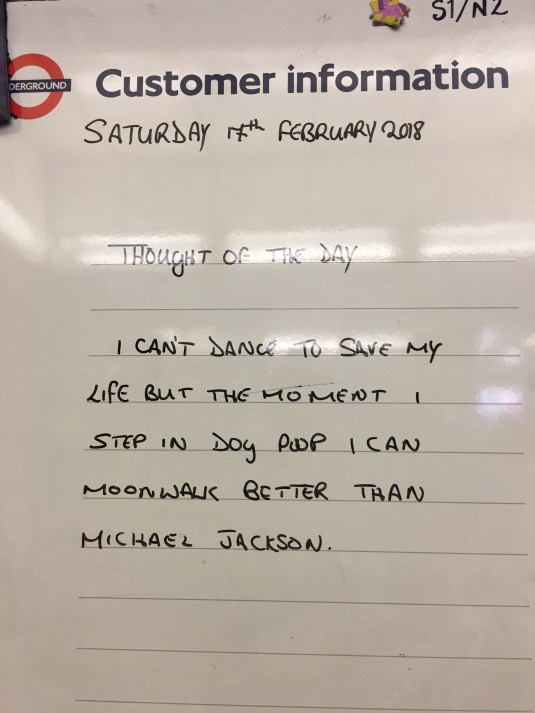 S1/N2
DERGROUND
Customer information
SATURDAY 17th FEBRUARY 2018
THOUGHT OF THE DAY
I CAN'T DANCE TO SAVE MY
LIFE BUT THE MOMENT I
STEP IN DOG POOP I CAN
MOONWALK BETTER THAN
MICHAEL JACKSON.